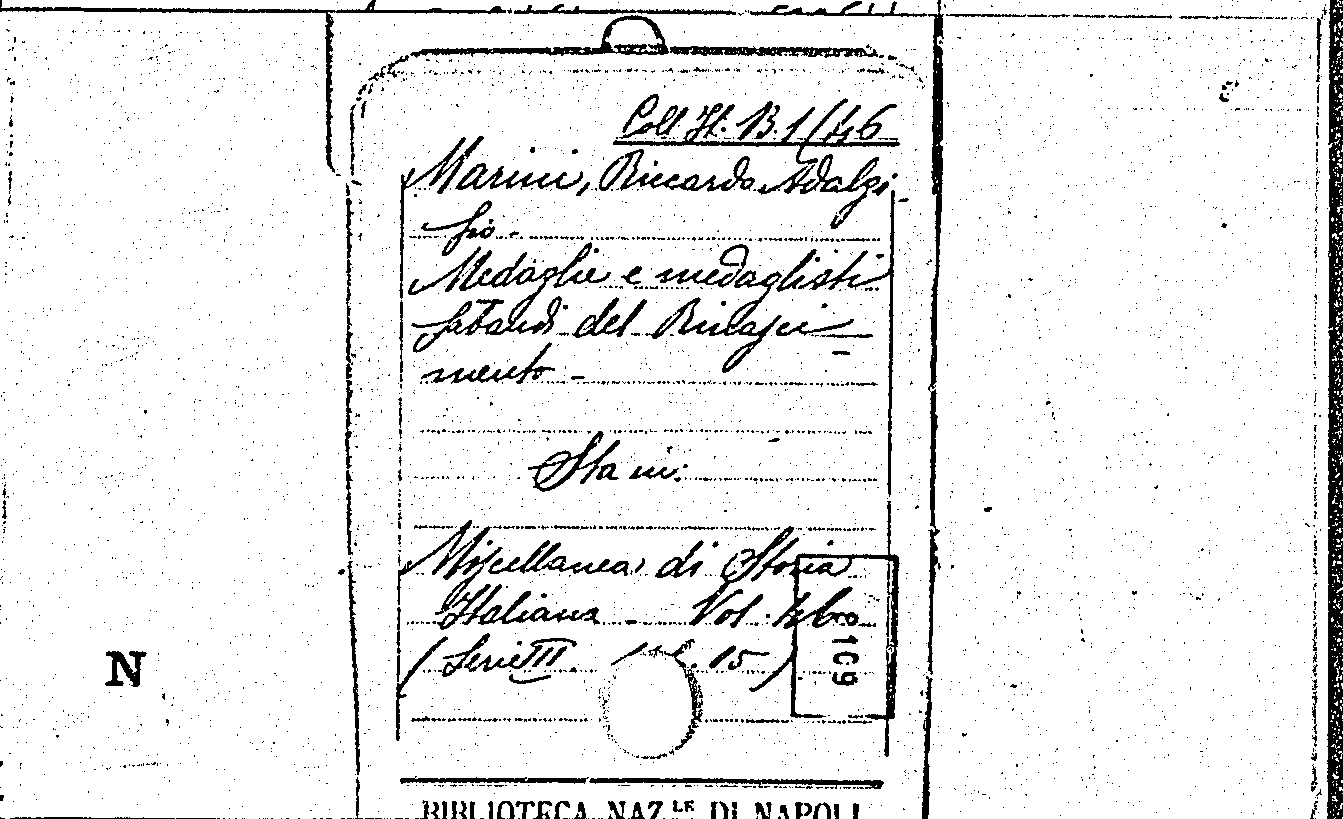 Coll It. B. 1/46
Marini, Riccardo Adalgi
sio -
Medaglie e medaglisti
sabaudi del Rinasci
mento -
Sta in:
Miscellanea di Storia
Italiana - Vol. 46
(Serie III. 15)
N
BIBLIOTECA NAZ.LE DI NAPOLI